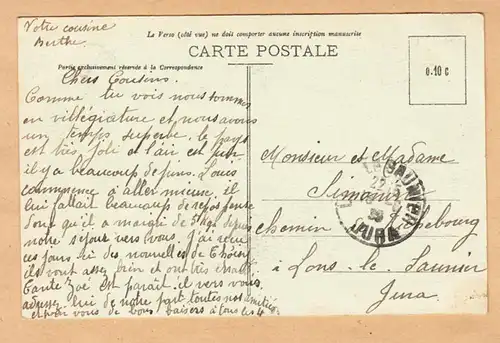 Votre cousine
Berthe
Le Verso (côté vue) ne doit comporter aucune inscription manuscrite
CARTE POSTALE
Partie exclusivement réservée à la Correspondance
0.10 c
Chers Cousins.
Comme tu vois nous sommes
en villégiature et nous avons
un temps superbe. le pays
est très joli et l'air est pur
il y a beaucoup de pins. Louis
commence à aller mieux. il
lui fallait beaucoup de repos
qu'il a maigri de 5 kgs depuis
notre séjour vers vous. J'ai reçu
ces jours ici des nouvelles de
ils vont assez bien et ont très chaud
tante Zoé est parait-il vers vous
lui de notre part toutes nos amitiés
et pour vous de bons baisers à tous les 4
Monsieur et Madame
Simonin
chemin
à Lons-le-Saunier
Jura
JURA